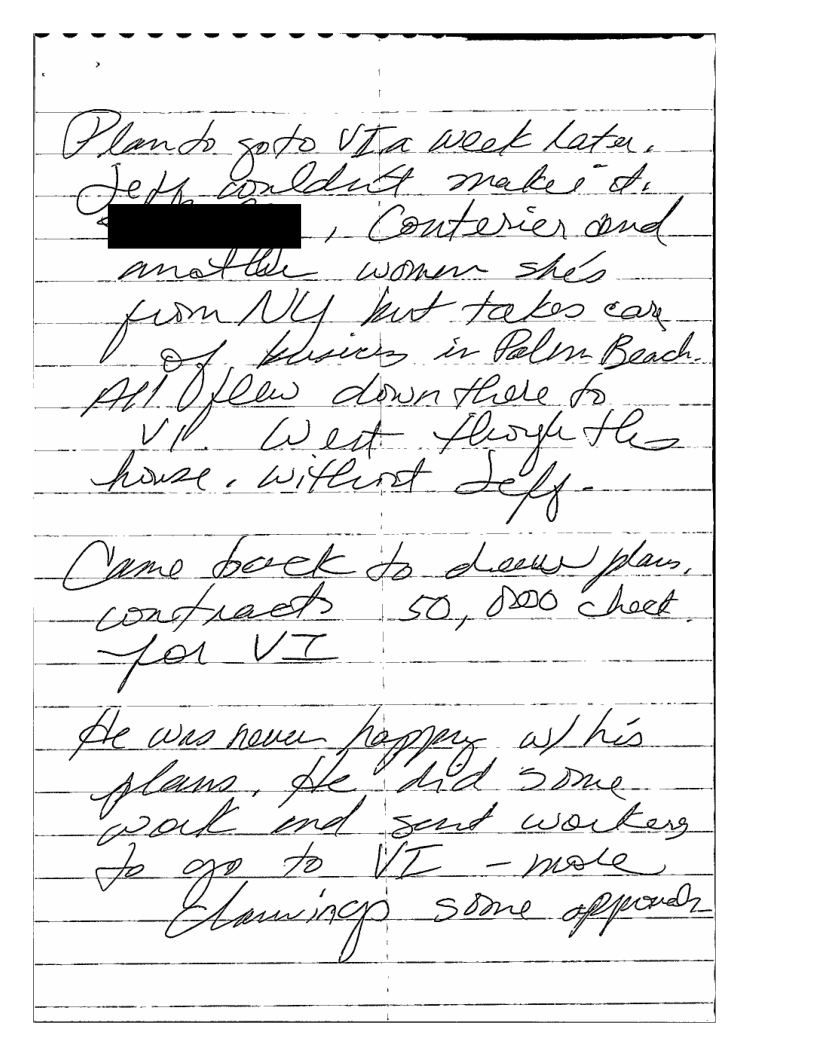 Plan to go to VI a week later.
Jeff couldn't make it.
, Couterier and
another women she's
from NY but takes care
of business in Palm Beach.
All flew down there to
VI. Went though the
house. without Jeff.
Came back to draw plans,
contracts 50,000 check
for VI
He was never happy w/ his
plans. He did some
work and sent workers
to go to VI - more
drawings some